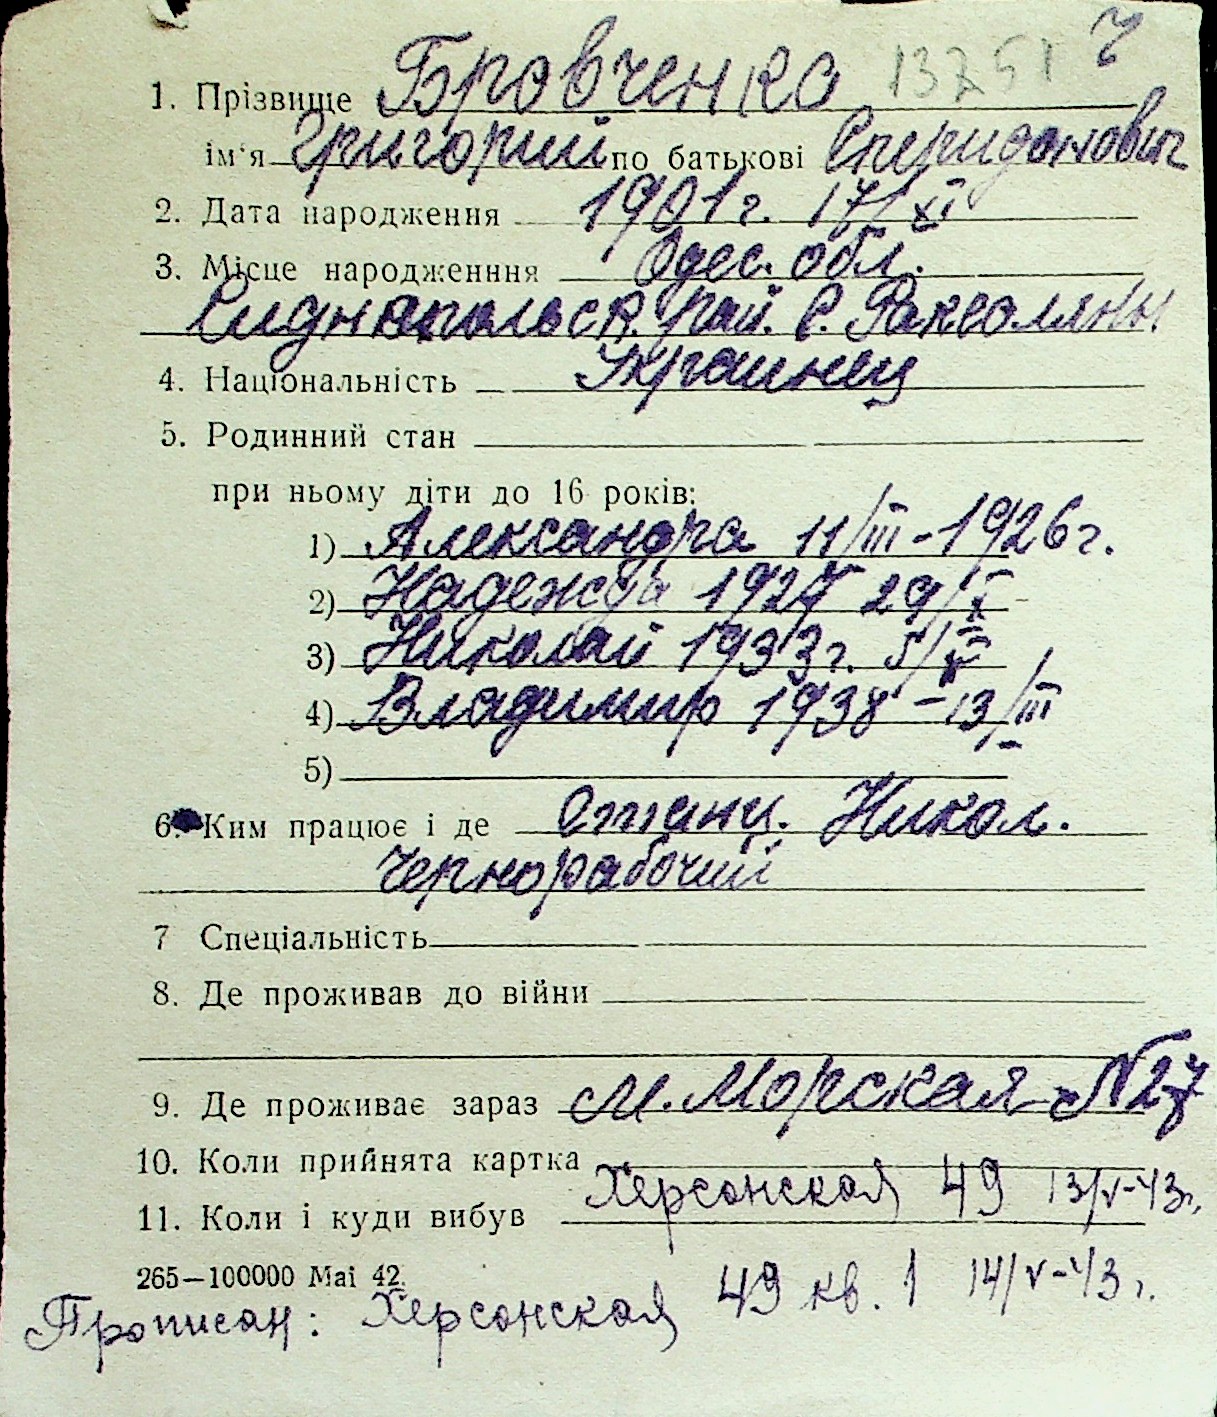 13751 7
1. Прізвище Бровченко
ім'я Григорий по батькові Спиридонович
2. Дата народження 1901 г. 17/XI
3. Місце народженння Одес. обл.
рай. с.
4. Національність Украинец
5. Родинний стан
при ньому діти до 16 років:
1) Александра 11/III-1926 г.
2) Надежда 1927 29/X
3) Николай 1933 г. 5/
4) Владимир 1938 - 13/III
5)
6. Ким працює і де Станц. Никол.
Чернорабочий
7 Спеціальність
8. Де проживав до війни
9. Де проживає зараз М. Морская N27
10. Коли прийнята картка
Херсонская 49 13/V-43 г.
11. Коли і куди вибув
265—100000 Mai 42.
Прописан: Херсонская 49 кв. 1 14/V-43 г.